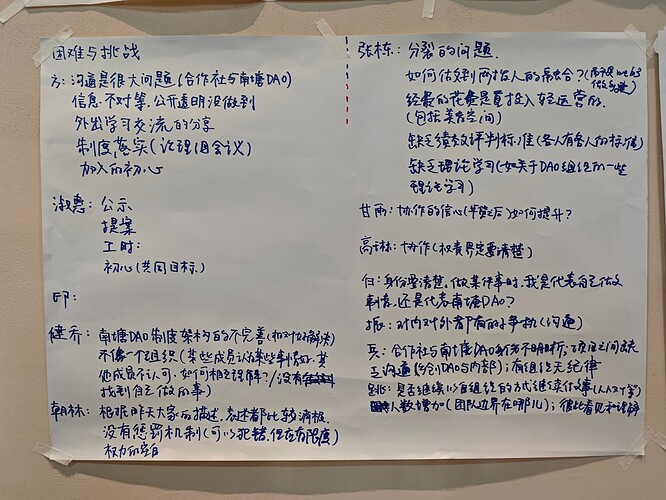 困难与挑战
方：沟通是很大问题（合作社与南塘DAO）
信息不对等，公开透明没做到
外出学习交流的分享
制度落实（论理组会议）
加入的初心
淑惠：公示
提案
工时：
初心（共同目标）
邱：
健乔：南塘DAO制度架构的不完善（相对好解决）
不像一个组织（某些成员认为某些事很好，其
他成员不认可，如何相互理解？/没有
找到自己做的事）
朝林：根据昨天大家的描述，都比较消极
没有惩罚机制（可以犯错，但应有限度）
权力的空白
张栋：分裂的问题
如何做到两拨人的融合？（而不是web3
经费的花费是更投入好运营的
（包括美宿空间）
缺乏绩效评判标准（各人有各人的标准）
缺乏理论学习（如关于DAO组织的一些
理论学习）
甘雨：协作的信心（之后）如何提升？
高琳：协作（权责界定要清楚）
归：身份要清楚，做某件事时，我是代表自己做
事情，还是代表南塘DAO？
振：对内对外都有的争执（沟通）
兵：合作社与南塘DAO身份不明晰；项目之间缺
乏沟通（合创DAO与内部）；有组织无纪律
是否继续以自组织的方式继续做事（
人数增加（团队边界在哪儿）；彼此看见和理解